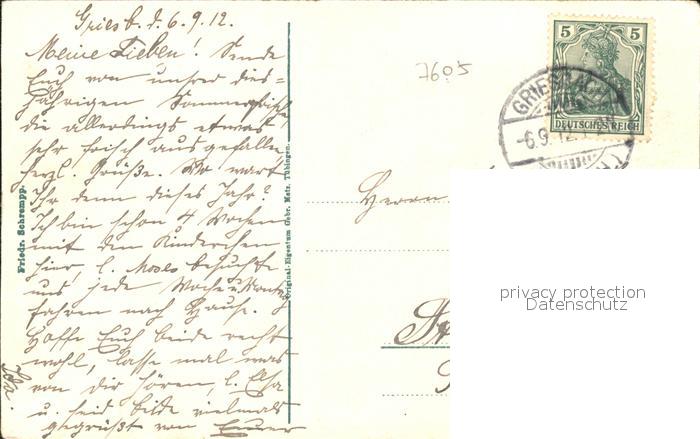 Griesb. d. 6.9.12.
Meine Lieben! Sende
Euch von unsrer dies=
jährigen Sommerfrische
die allerdings etwas
sehr frisch ausgefallen,
herzl. Grüße. Wo wart
Ihr denn dieses Jahr?
Ich bin schon 4 Wochen
mit den Kinderchen
hier, l. Moses besuchte
uns jede Woche u.
fahren nach Hause.
Hoffe Euch beide recht
wohl, lasse mal was
von dir hören, l. Elsa
u. seid beide vielmals
gegrüßt von Eurer
Friedr. Schrempp.
Original-Eigentum Gebr. Metz, Tübingen.
7605
5 5
DEUTSCHES REICH
GRIESBACH
-6.9.12.
Herrn
privacy protection
Datenschutz